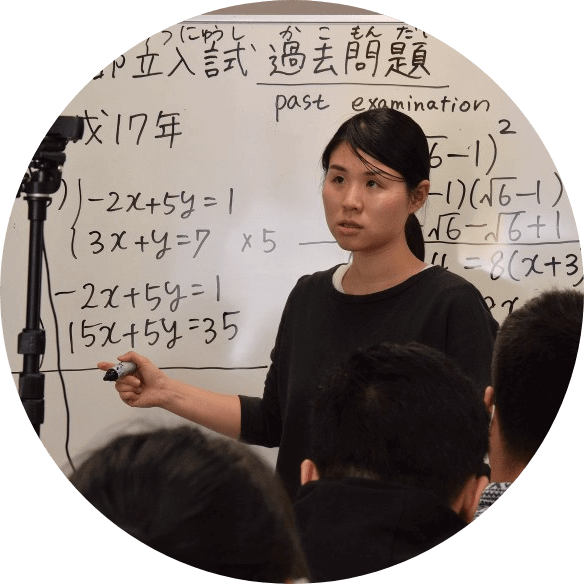 つにゅうし かこもんだい
立入試 過去問題
past examination
成17年
-2x+5y=1
3x+y=7 ×5
-2x+5y=1
15x+5y=35
√6-1)²
-1)(√6-1)
√6-√6+1
=8(x+3)